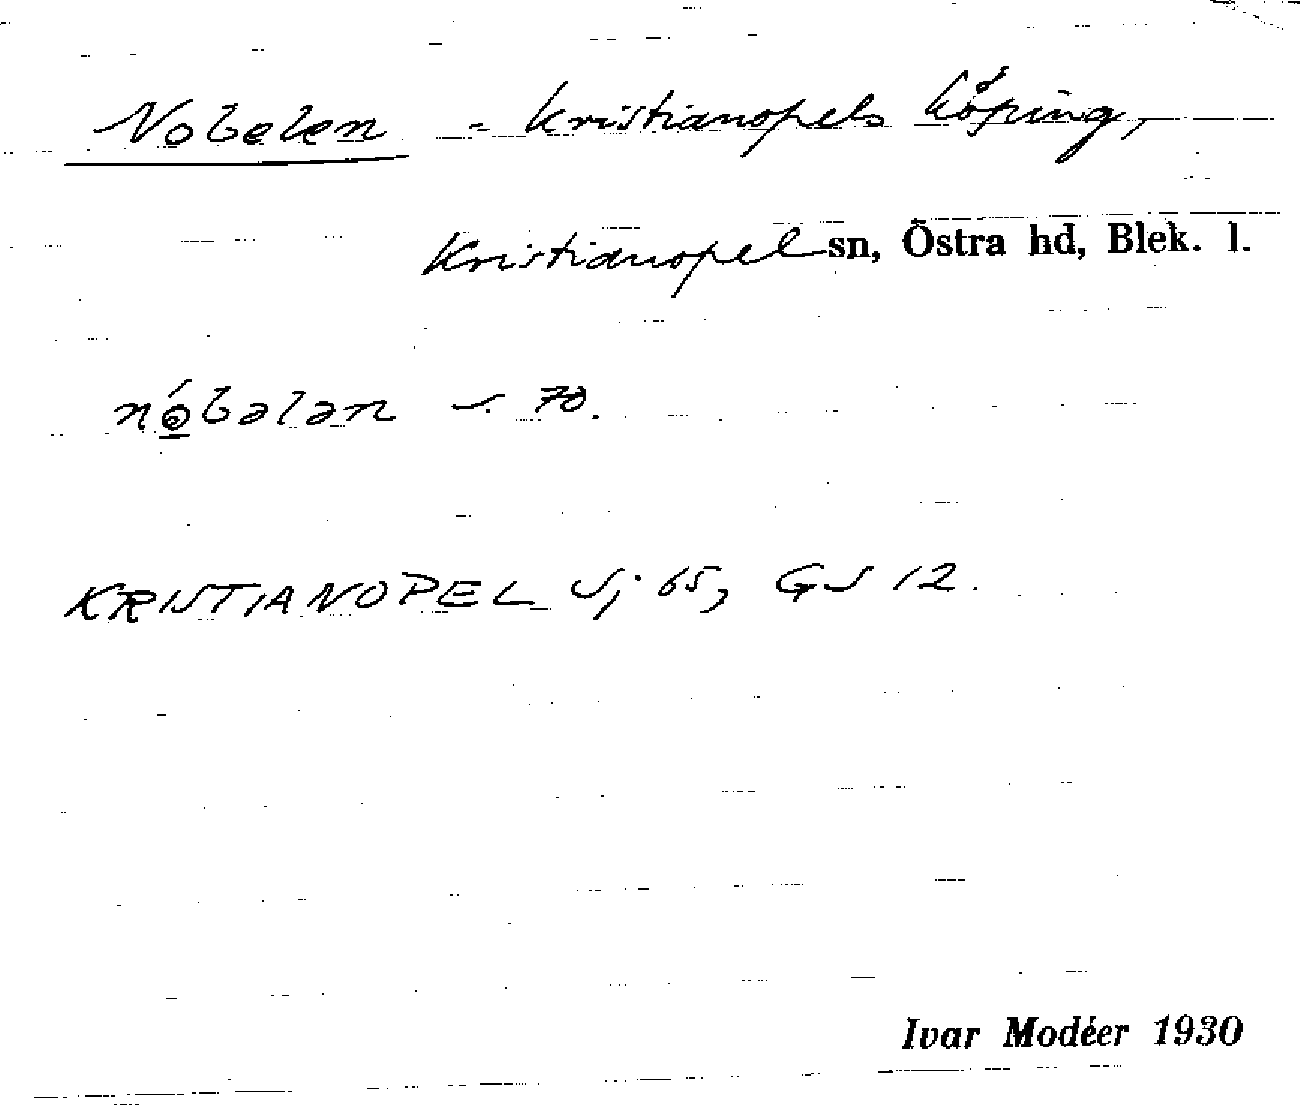 Nobelen - Kristianopels köping,
Kristianopel sn, Östra hd, Blek. l.
nóbələn 70.
KRISTIANOPEL Sj 65, GS 12.
Ivar Modéer 1930